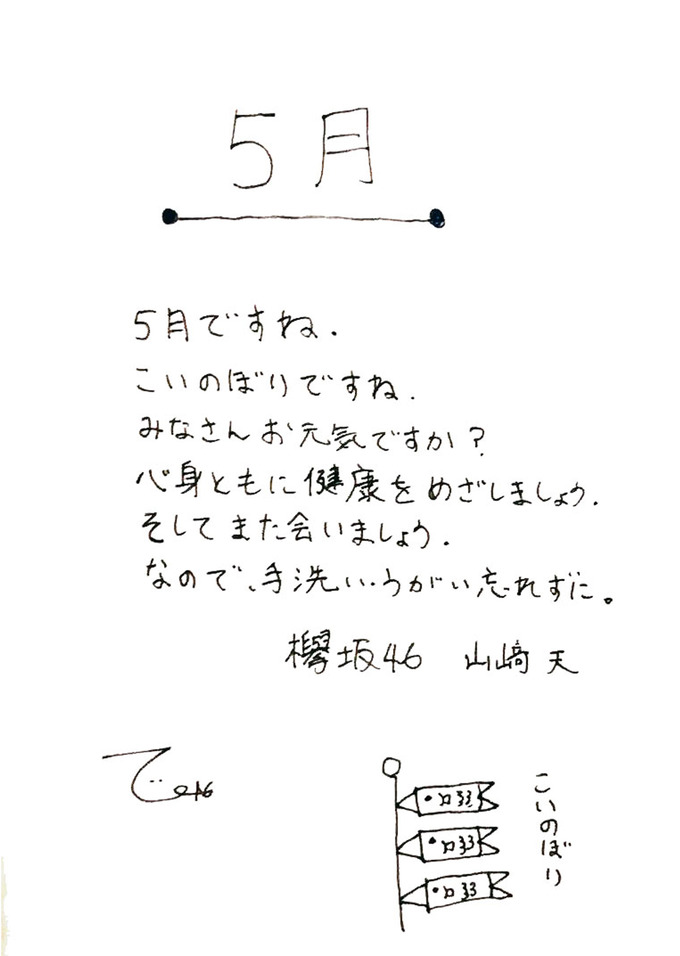 5月
5月ですね.
こいのぼりですね.
みなさんお元気ですか?
心身ともに健康をめざしましょう.
そしてまた会いましょう.
なので、手洗い・うがい忘れずに。
欅坂46 山﨑 天
こいのぼり